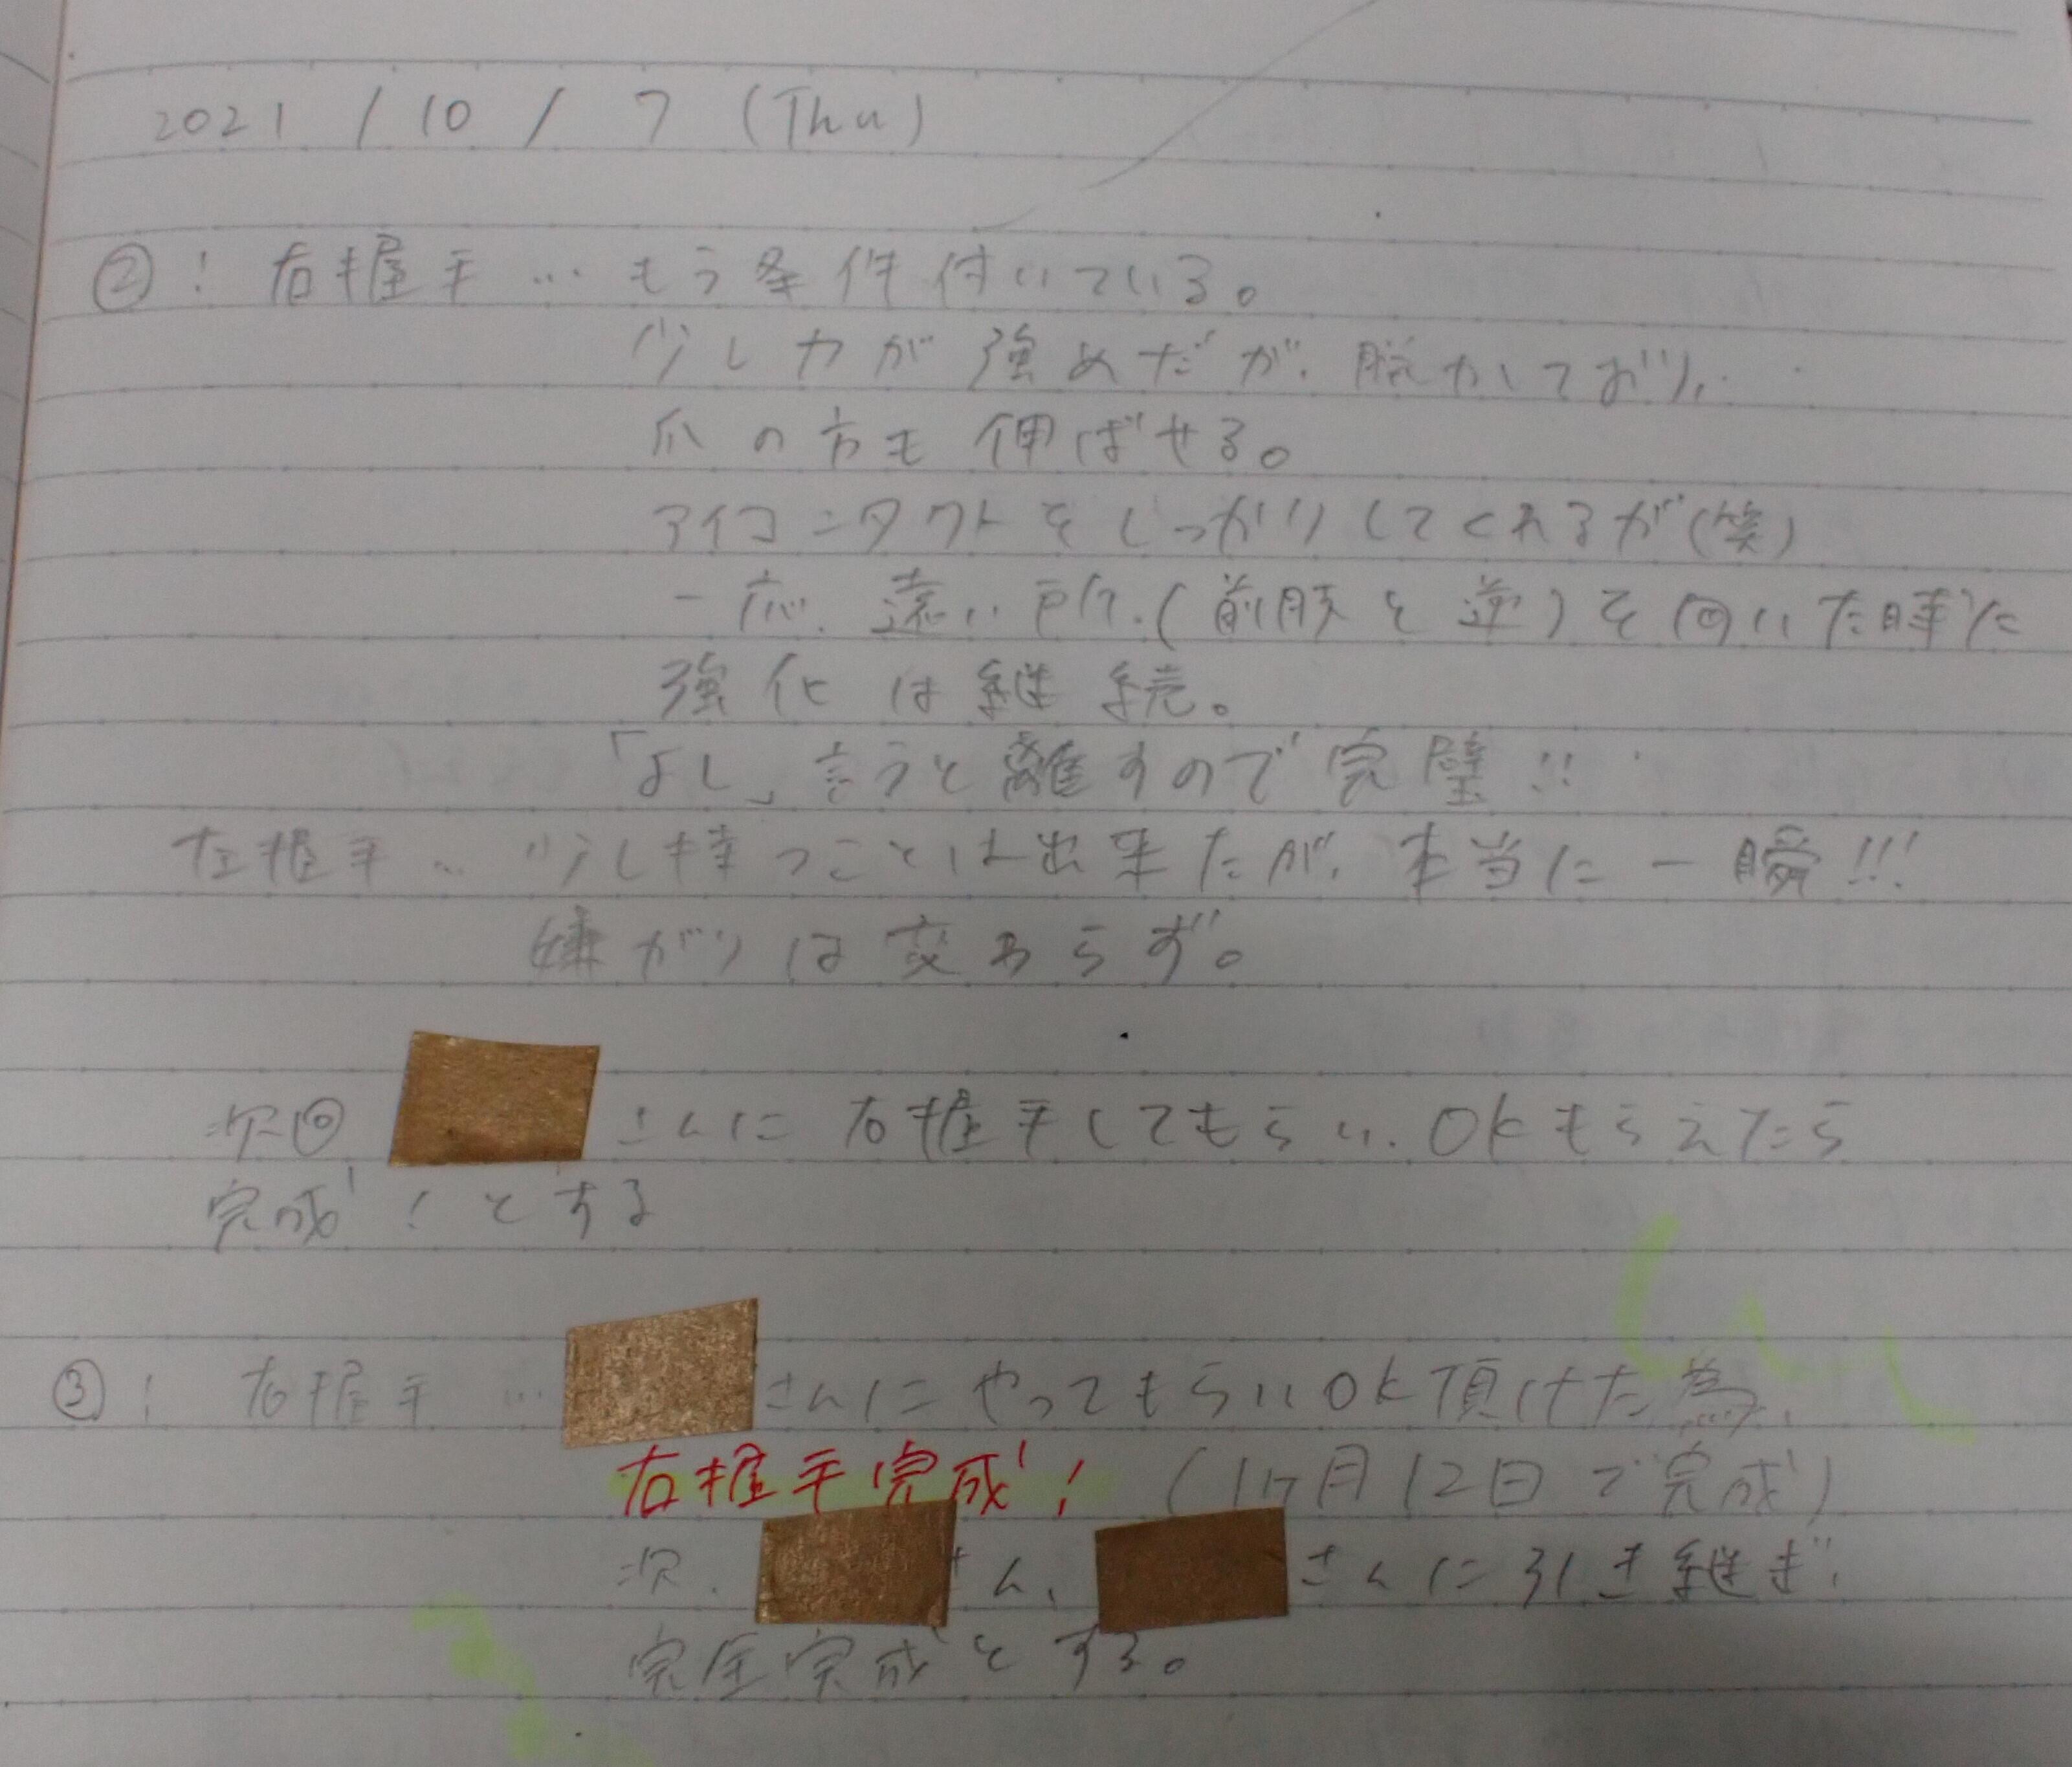 2021 / 10 / 7 (Thu)
②! 右握手… もう条件付いている。
少し力が強めだが、脱力しており、
爪の方も伸ばせる。
アイコンタクトをしっかりしてくれるが(笑)
一応、遠い所(前肢と逆)を向いた時に
強化は継続。
「よし」言うと離すので完璧!!
左握手… 少し持つことは出来たが、本当に一瞬!!!
嫌がりは変わらず。
次回 さんに右握手してもらい、OKもらえたら
完成!とする
③! 右握手… さんにやってもらいOK頂けた為、
右握手完成! (1ヶ月12日で完成)
次、 さん、 さんに引き継ぎ、
完全完成とする。